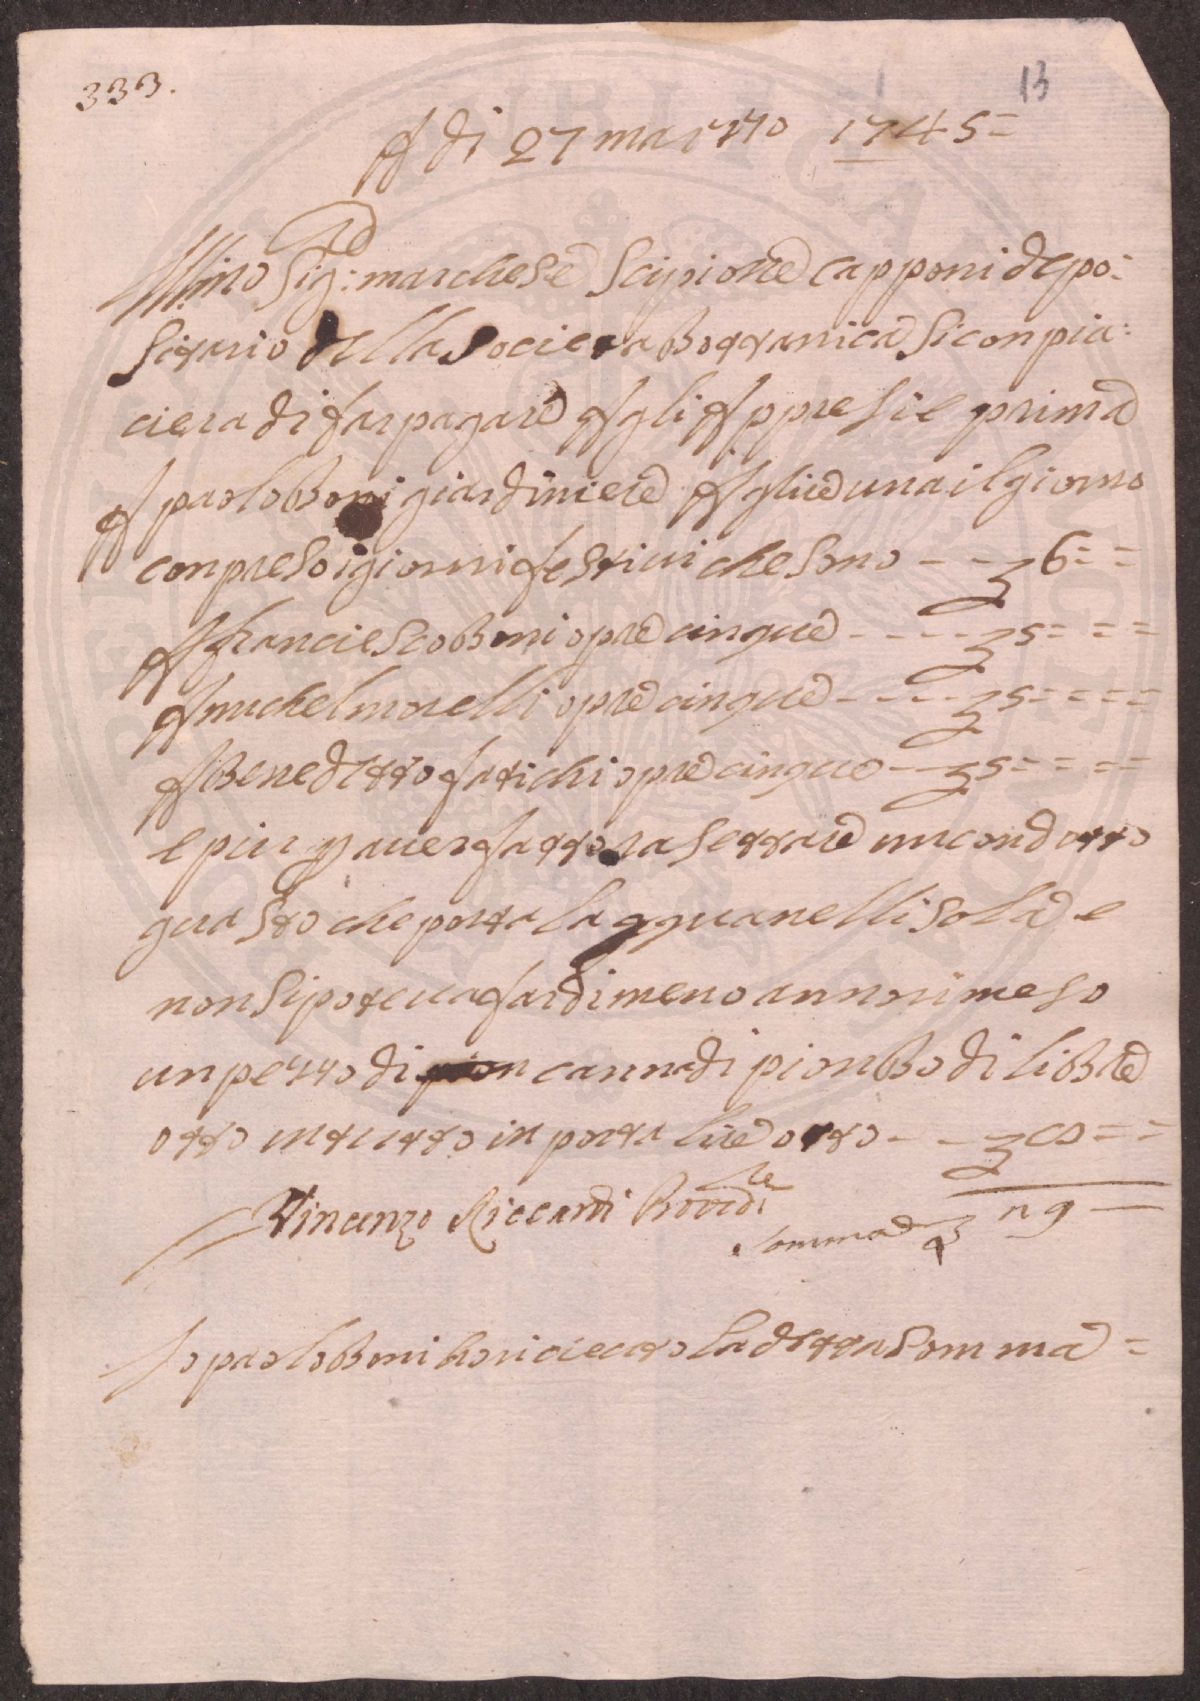 333.
13
A di 27 marzzo 1745=
Illmo Sig:re marchese Scipione capponi depo:
sitario della Societa Bottanica Si conpia:
ciera di far pagare A gli Appresi e prima
A paolo Boni giardiniere A lire una il giorno
conpreso i giorni festivi che sono - - £ 6= =
A franciesco Boni opre cinque - - - - £ 5= = =
A michel morelli opre cinque - - - - £ 5= = = =
A Benedetto fatichi opre cinque - - £ 5= = = =
e piu p aver fatto rasettare un condotto
guasto che porta lagqua nell isola e
non si poteva far di meno anno rimeso
un pezzo di canna di pionbo di libbre
otto in tutto in porta lire otto - - £ 8= =
Vincenzo Riccardi Proved:re
Somma £ 29 —
Io paolo Boni ho riceuto la detta somma =